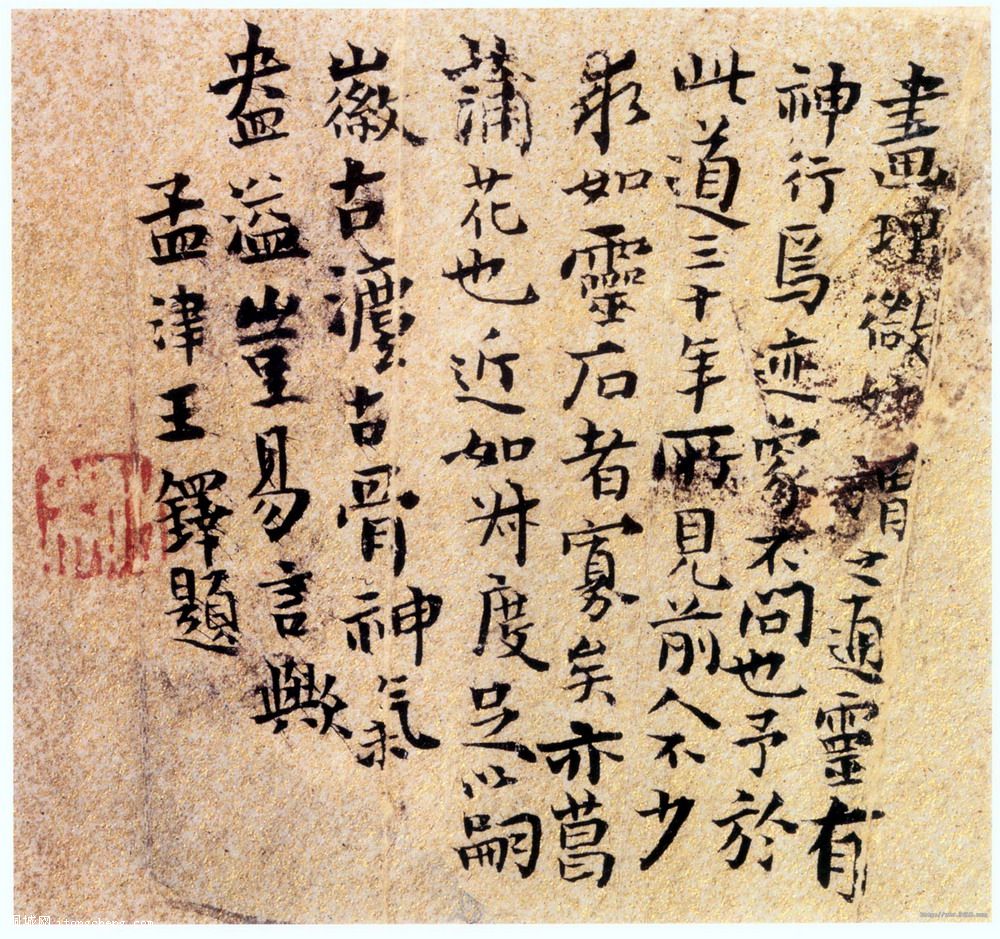 畫理微妙謂之通靈有
神行焉迹象不問也予於
此道三十年所見前人不少
求如靈石者寡矣亦菖
蒲花也近如叔度足以嗣
徽古瀍古骨神氣
盎溢豈易言歟
孟津王鐸題